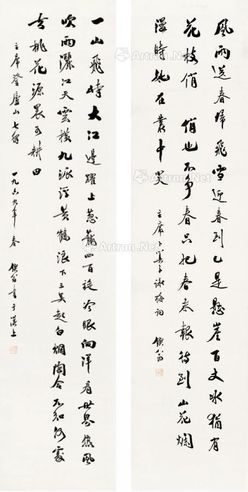 風雨送春歸飛雪迎春到已是懸崖百丈冰猶有
花枝俏俏也不争春只把春來報待到山花爛
漫時她在叢中笑 主席卜算子詠梅詞 鐵翁
一山飛峙大江邊躍上葱蘢四百旋冷眼向洋看世界熱風
吹雨灑江天雲橫九派浮黄鶴浪下三吴起白煙陶令不知何處
去桃花源裏可耕田
主席登廬山七律 一九六六年春 鐵翁書于滬上
Artron.Net